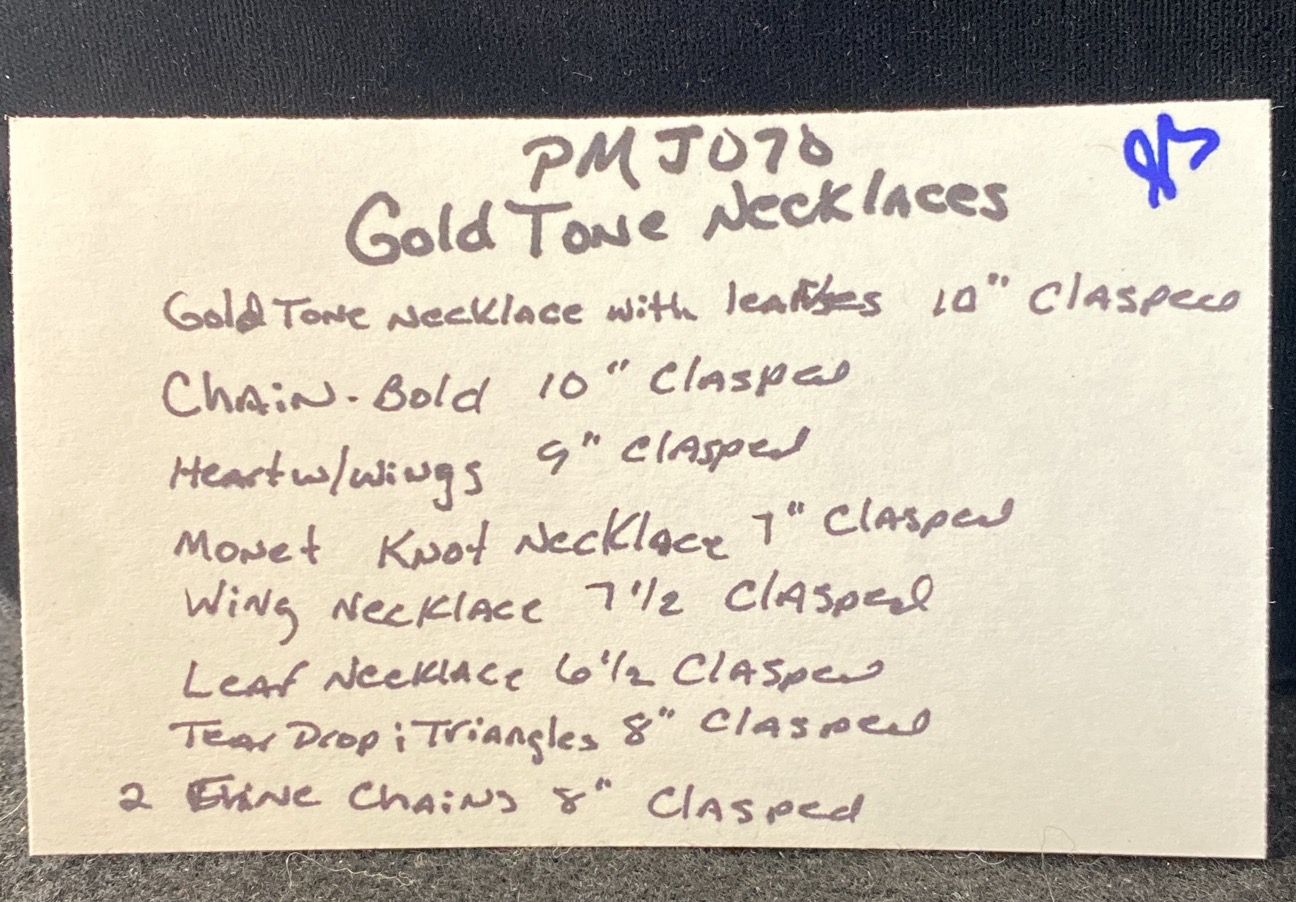 PMJ070
Gold Tone Necklaces
Gold Tone Necklace with 10" Clasped
Chain - Bold 10" Clasped
Heart w/wings 9" Clasped
Monet Knot Necklace 7" Clasped
Wing Necklace 7 1/2 Clasped
Leaf Necklace 6 1/2 Clasped
Tear Drop ; Triangles 8" Clasped
2 Fine Chains 8" Clasped